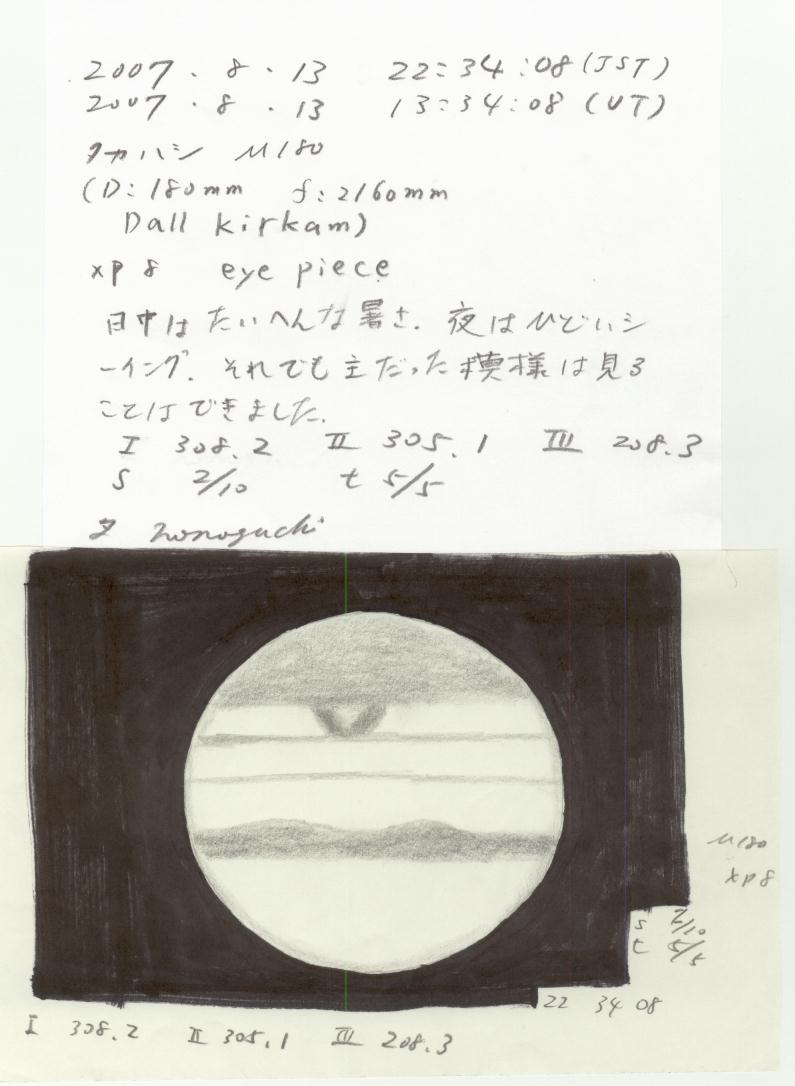 2007.8.13 22:34:08 (JST)
2007.8.13 13:34:08 (UT)
タカハシ μ180
(D: 180mm f: 2160mm
Dall Kirkam)
xp 8 eye piece
日中はたいへんな暑さ. 夜はひどいシ
ーイング. それでも主だった模様は見る
ことはできました.
I 308.2 II 305.1 III 208.3
S 2/10 t 5/5
nonoguchi
μ180
xp 8
s 2/10
t 5/5
22 34 08
I 308.2 II 305.1 III 208.3